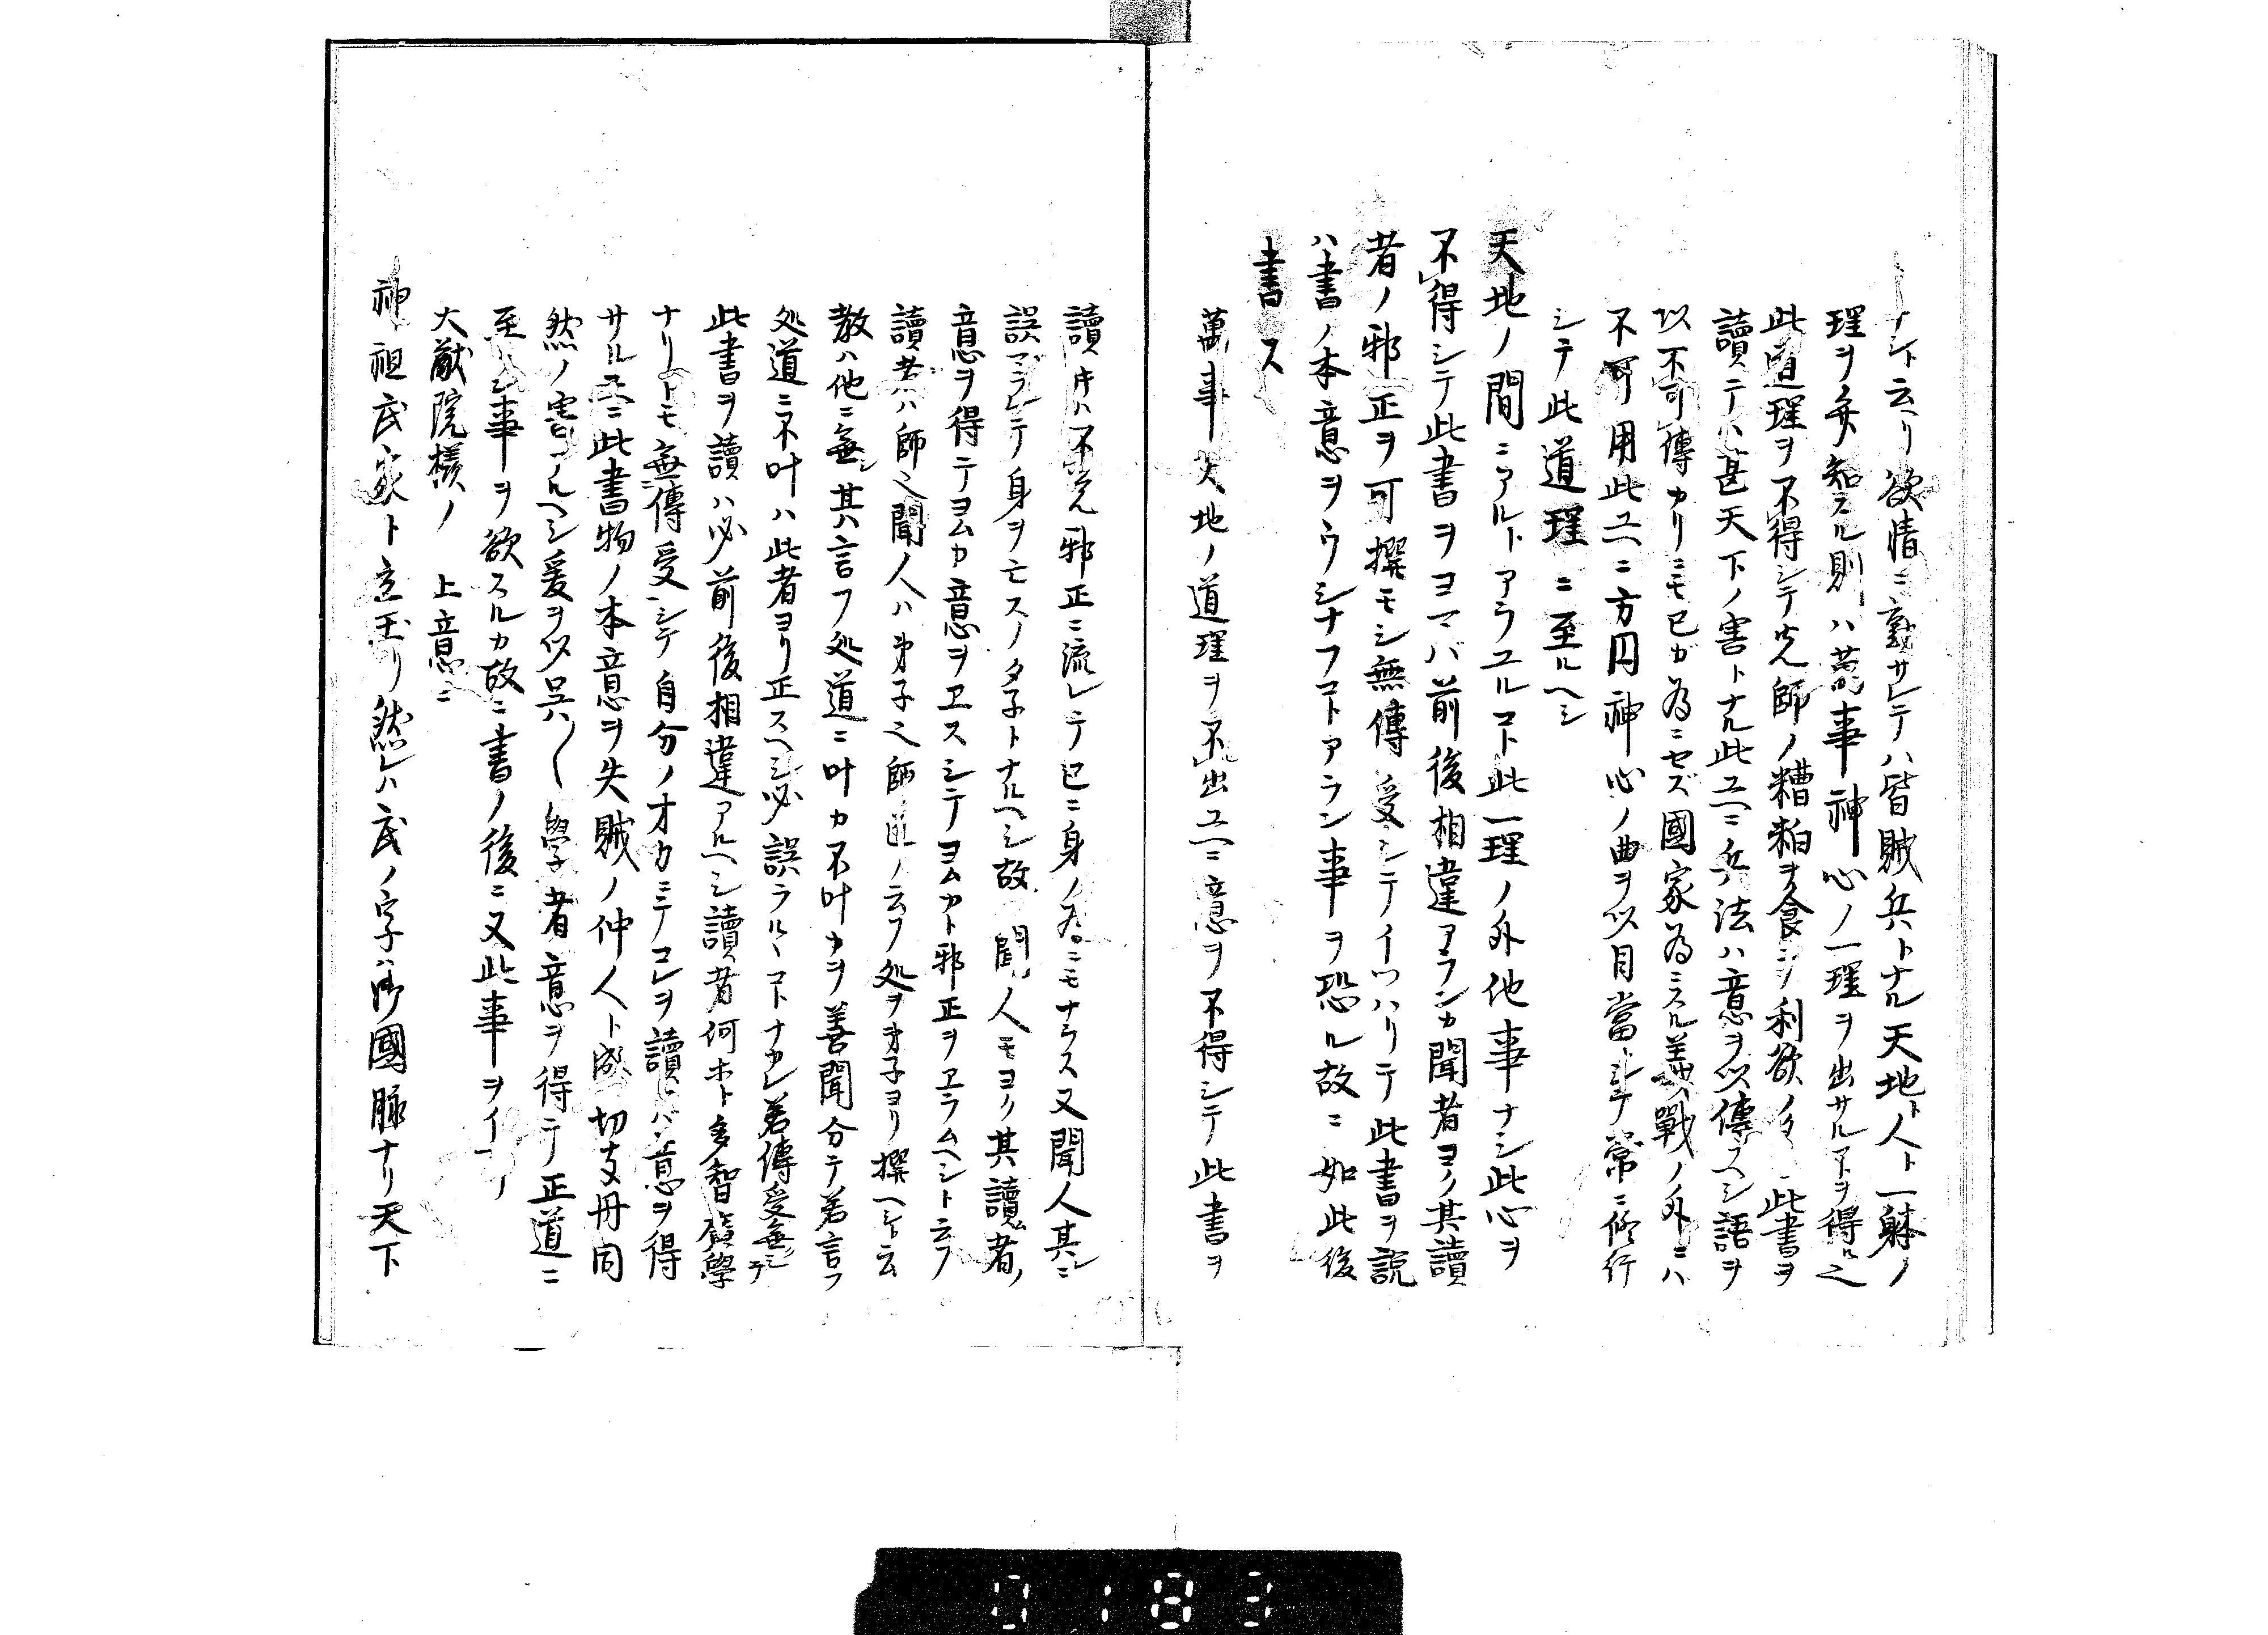 ナント云ヘリ欲情ニ蔽サレテハ皆賊兵トナル天地ト人ト一躰ノ
理ヲ弁知スル則ハ萬事神心ノ一理ヲ出サルヿヲ得ル之
此道理ヲ不得シテ先師ノ糟粕ヲ食シ利欲ノ 此書ヲ
讀テハ甚天下ノ害トナル此ユヘニ兵法ハ意ヲ以傳フヘシ語ヲ
以不可傳カリニモ已ガ為ニセズ國家為ニスル義戰ノ外ニハ
不可用此ユヘニ方円神心ノ曲ヲ以目當トシテ常ニ修行
シテ此道理ニ至ルヘシ
天地ノ間ニアルトアラユルコト此一理ノ外他事ナシ此心ヲ
不得シテ此書ヲヨマバ前後相違アランカ聞者ヨク其讀
者ノ邪正ヲ可撰モシ無傳受シテイツハリテ此書ヲ説
ハ書ノ本意ヲウシナフコトアラン事ヲ恐ル故ニ如此後
書ス
萬事天地ノ道理ヲ不出ユヘニ意ヲ不得シテ此書ヲ
讀キハ不覚邪正ニ流レテ已ニ身ノ為ニモナラス又聞人其ニ
誤マラレテ身ヲモスノタネトナルヘシ故聞人モヨク其讀者ノ
意ヲ得テヨムカ意ヲエスシテヨムカト邪正ヲエラムヘシト云フ
讀者ハ師之聞人ハ弟子之師匠ノ云フ処ヲ弟子ヨリ撰ヘシト云
教ハ他ニ無シ其ハ言フ処道ニ叶カ不叶カヲ善聞分テ若言フ
処道ニ不叶ハ此者ヨリ正スヘシ必誤ラルヽコトナカレ若傳受無シテ
此書ヲ讀ハ必前後相違アルヘシ讀者何ホト多智廣學
ナリトモ無傳受シテ自分ノオカニテコレヲ讀ハ意ヲ得
サルユヘニ此書物ノ本意ヲ失賊ノ仲人ト成切支丹同
然ノ害アルヘシ爰ヲ以呉〱學者意ヲ得テ正道ニ
至ン事ヲ欲スルカ故ニ書ノ後ニ又此事ヲイフ
大猷院様ノ 上意ニ
神祖武家ト立玉リ然レハ武ノ字ハ御國脈ナリ天下
0183